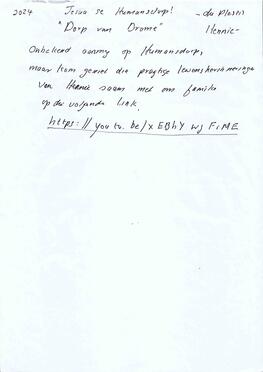 2024 Jesus se Humansdorp! - du Plessis
"Dorp van Drome" Hennie -
Onbekend aanmy op Humansdorp,
maar kom geniet die pragtige lewenshervormeringe
van Hennie saam met ons familie
op die volgende link.
https://youtu.be/xEBhYwjFiME